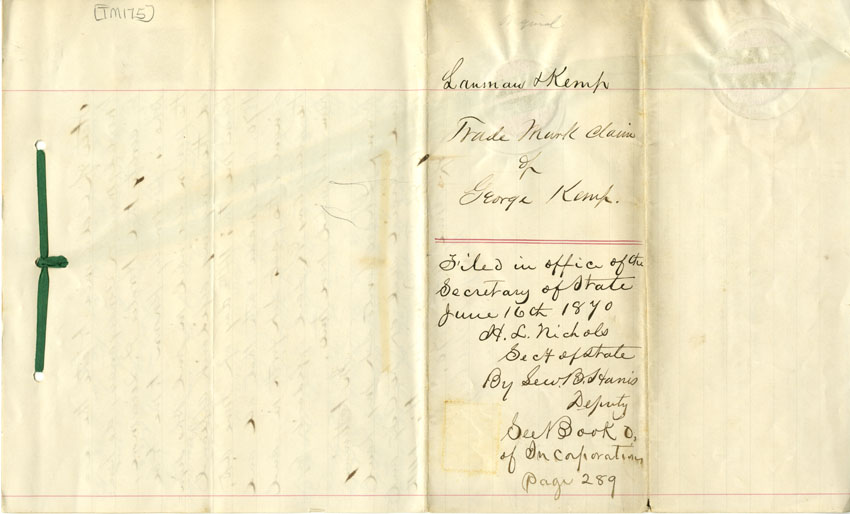 [TM175]
Lanman & Kemp
Trade Mark Claim
of
George Kemp.
Filed in office of the
Secretary of State
June 16th 1870
H. L. Nichols
Sect of State
By Lew B. Harris
Deputy
See Book
of Incorporations
page 289